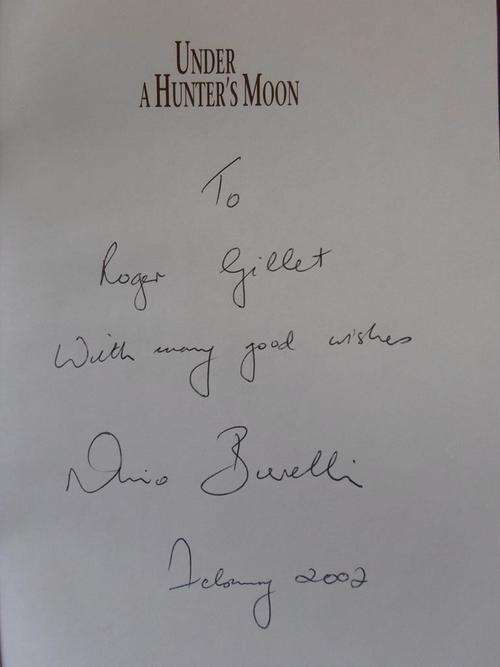 UNDER
A HUNTER'S MOON
To
Roger Gillet
With many good wishes
Nino Burelli
February 2002